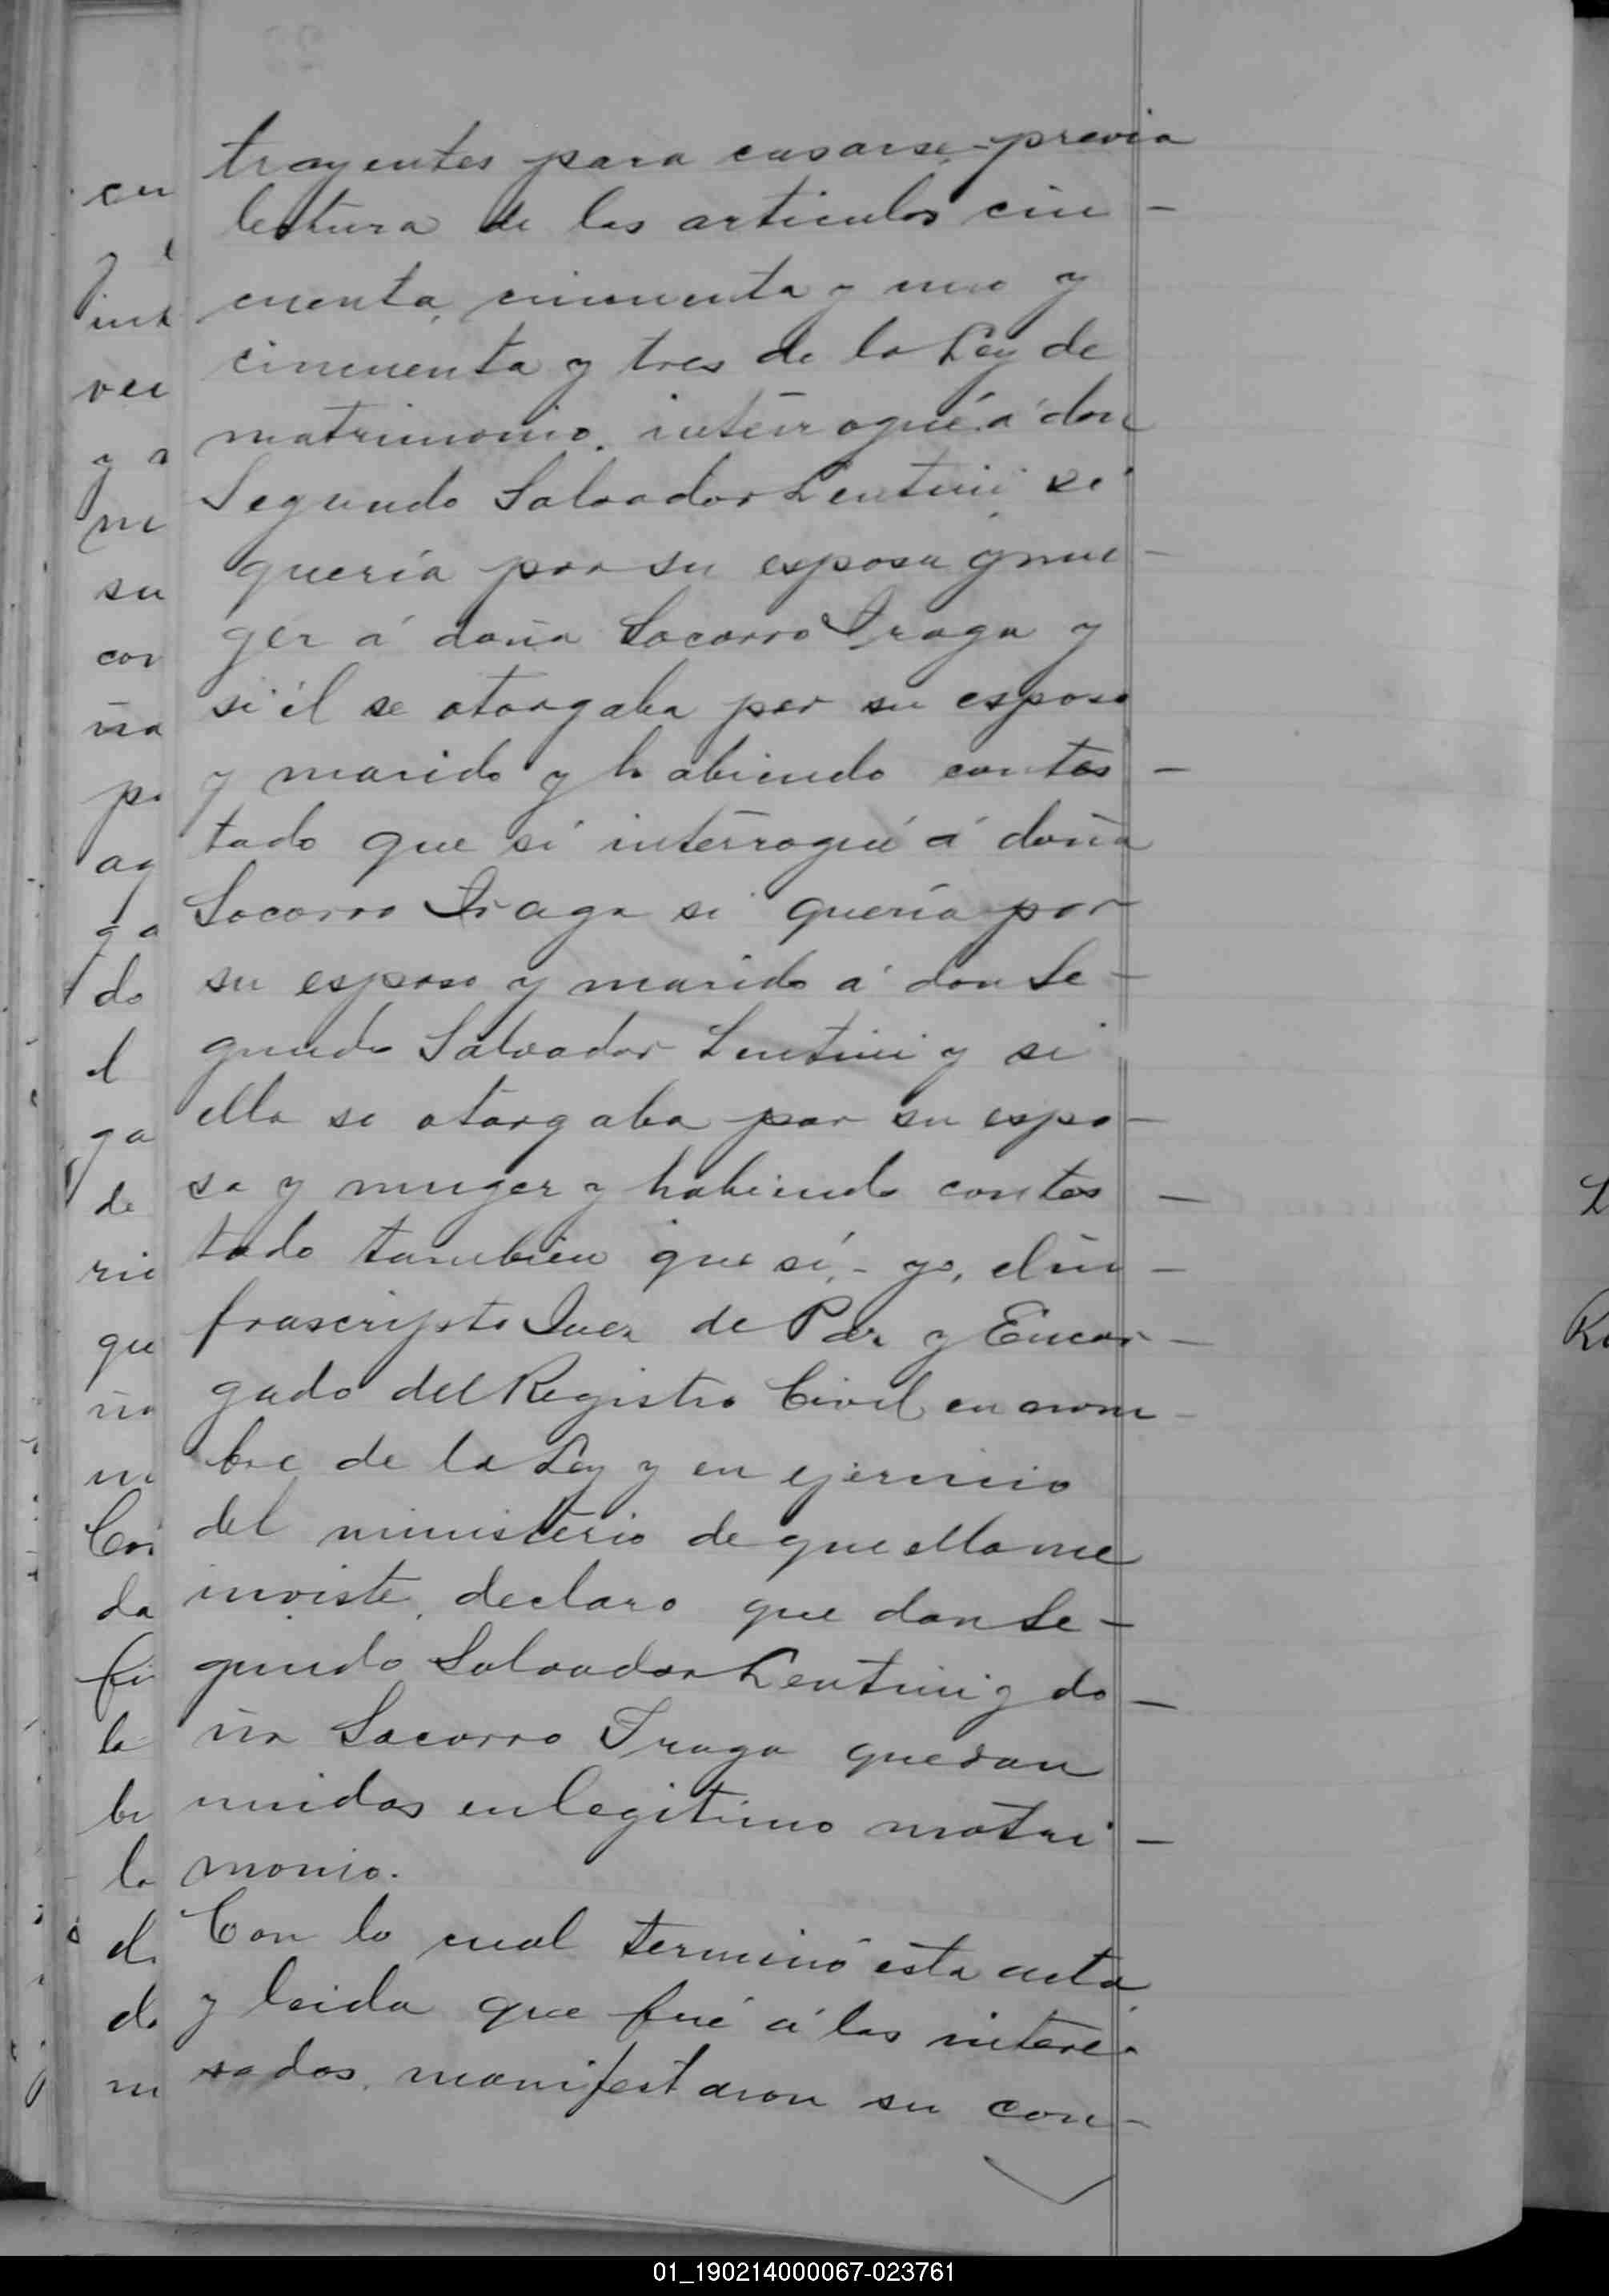 trayentes para casarse previa
lectura de los articulos cin-
cuenta, cincuenta y uno y
cincuenta y tres de la Ley de
matrimonio, interrogué á don
Segundo Salvador Lentini, si
quería por su esposa y mu-
ger á doña Socorro Iraga y
si él se otorgaba por su esposo
y marido y habiendo contes-
tado que sí interrogué á doña
Socorro Iraga si quería por
su esposo y marido á don Se-
gundo Salvador Lentini y si
ella se otorgaba por su espo-
sa y muger y habiendo contes-
tado tambien que sí, - yo, el in-
frascripto Juez de Paz y Encar-
gado del Registro Civil en nom-
bre de la Ley y en ejercicio
del ministerio de que ella me
inviste, declaro que don Se-
gundo Salvador Lentini y do-
ña Socorro Iraga quedan
unidos en legitimo matri-
monio.
Con lo cual terminó esta acta
y leida que fué á los intere-
sados, manifestaron su con-
01_190214000067-023761